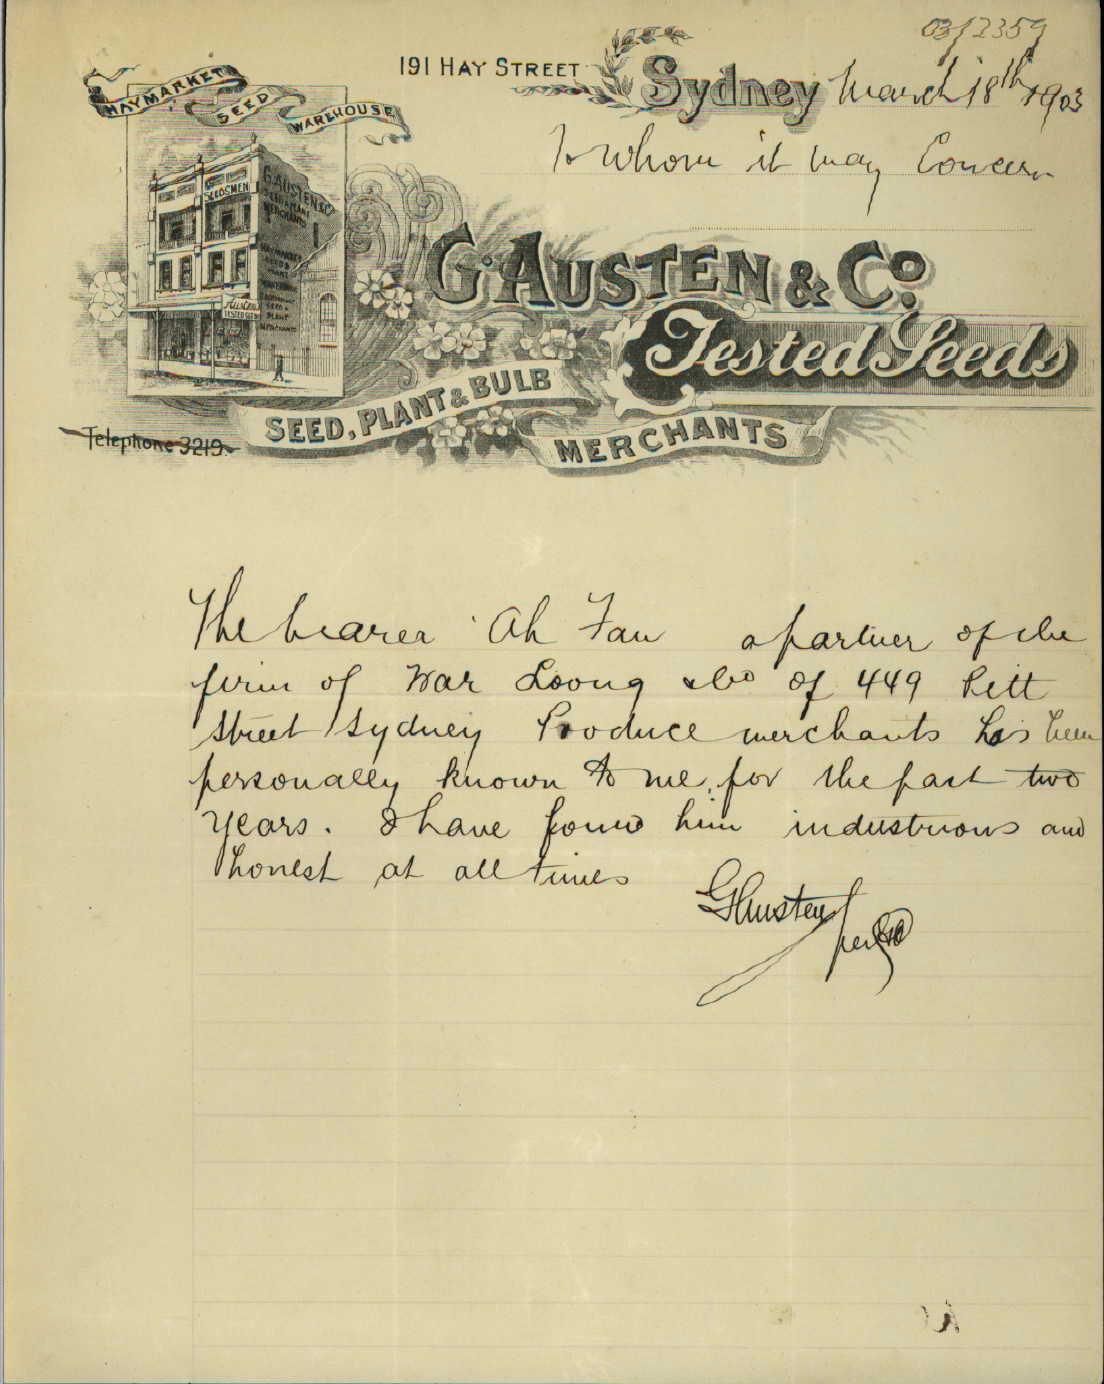 03/2359
191 HAY STREET Sydney March 18th 1903
To Whom it may Concern
HAYMARKET SEED WAREHOUSE
SEEDSMEN
G. AUSTEN & Co
G. AUSTEN & Co.
Tested Seeds
SEED, PLANT & BULB
MERCHANTS
Telephone 3219.
The bearer Ah Fan a partner of the
firm of War Loong & Co of 449 Pitt
Street Sydney Produce merchants has been
personally known to me, for the past two
years. I have found him industrious and
honest at all times
G Austen
per